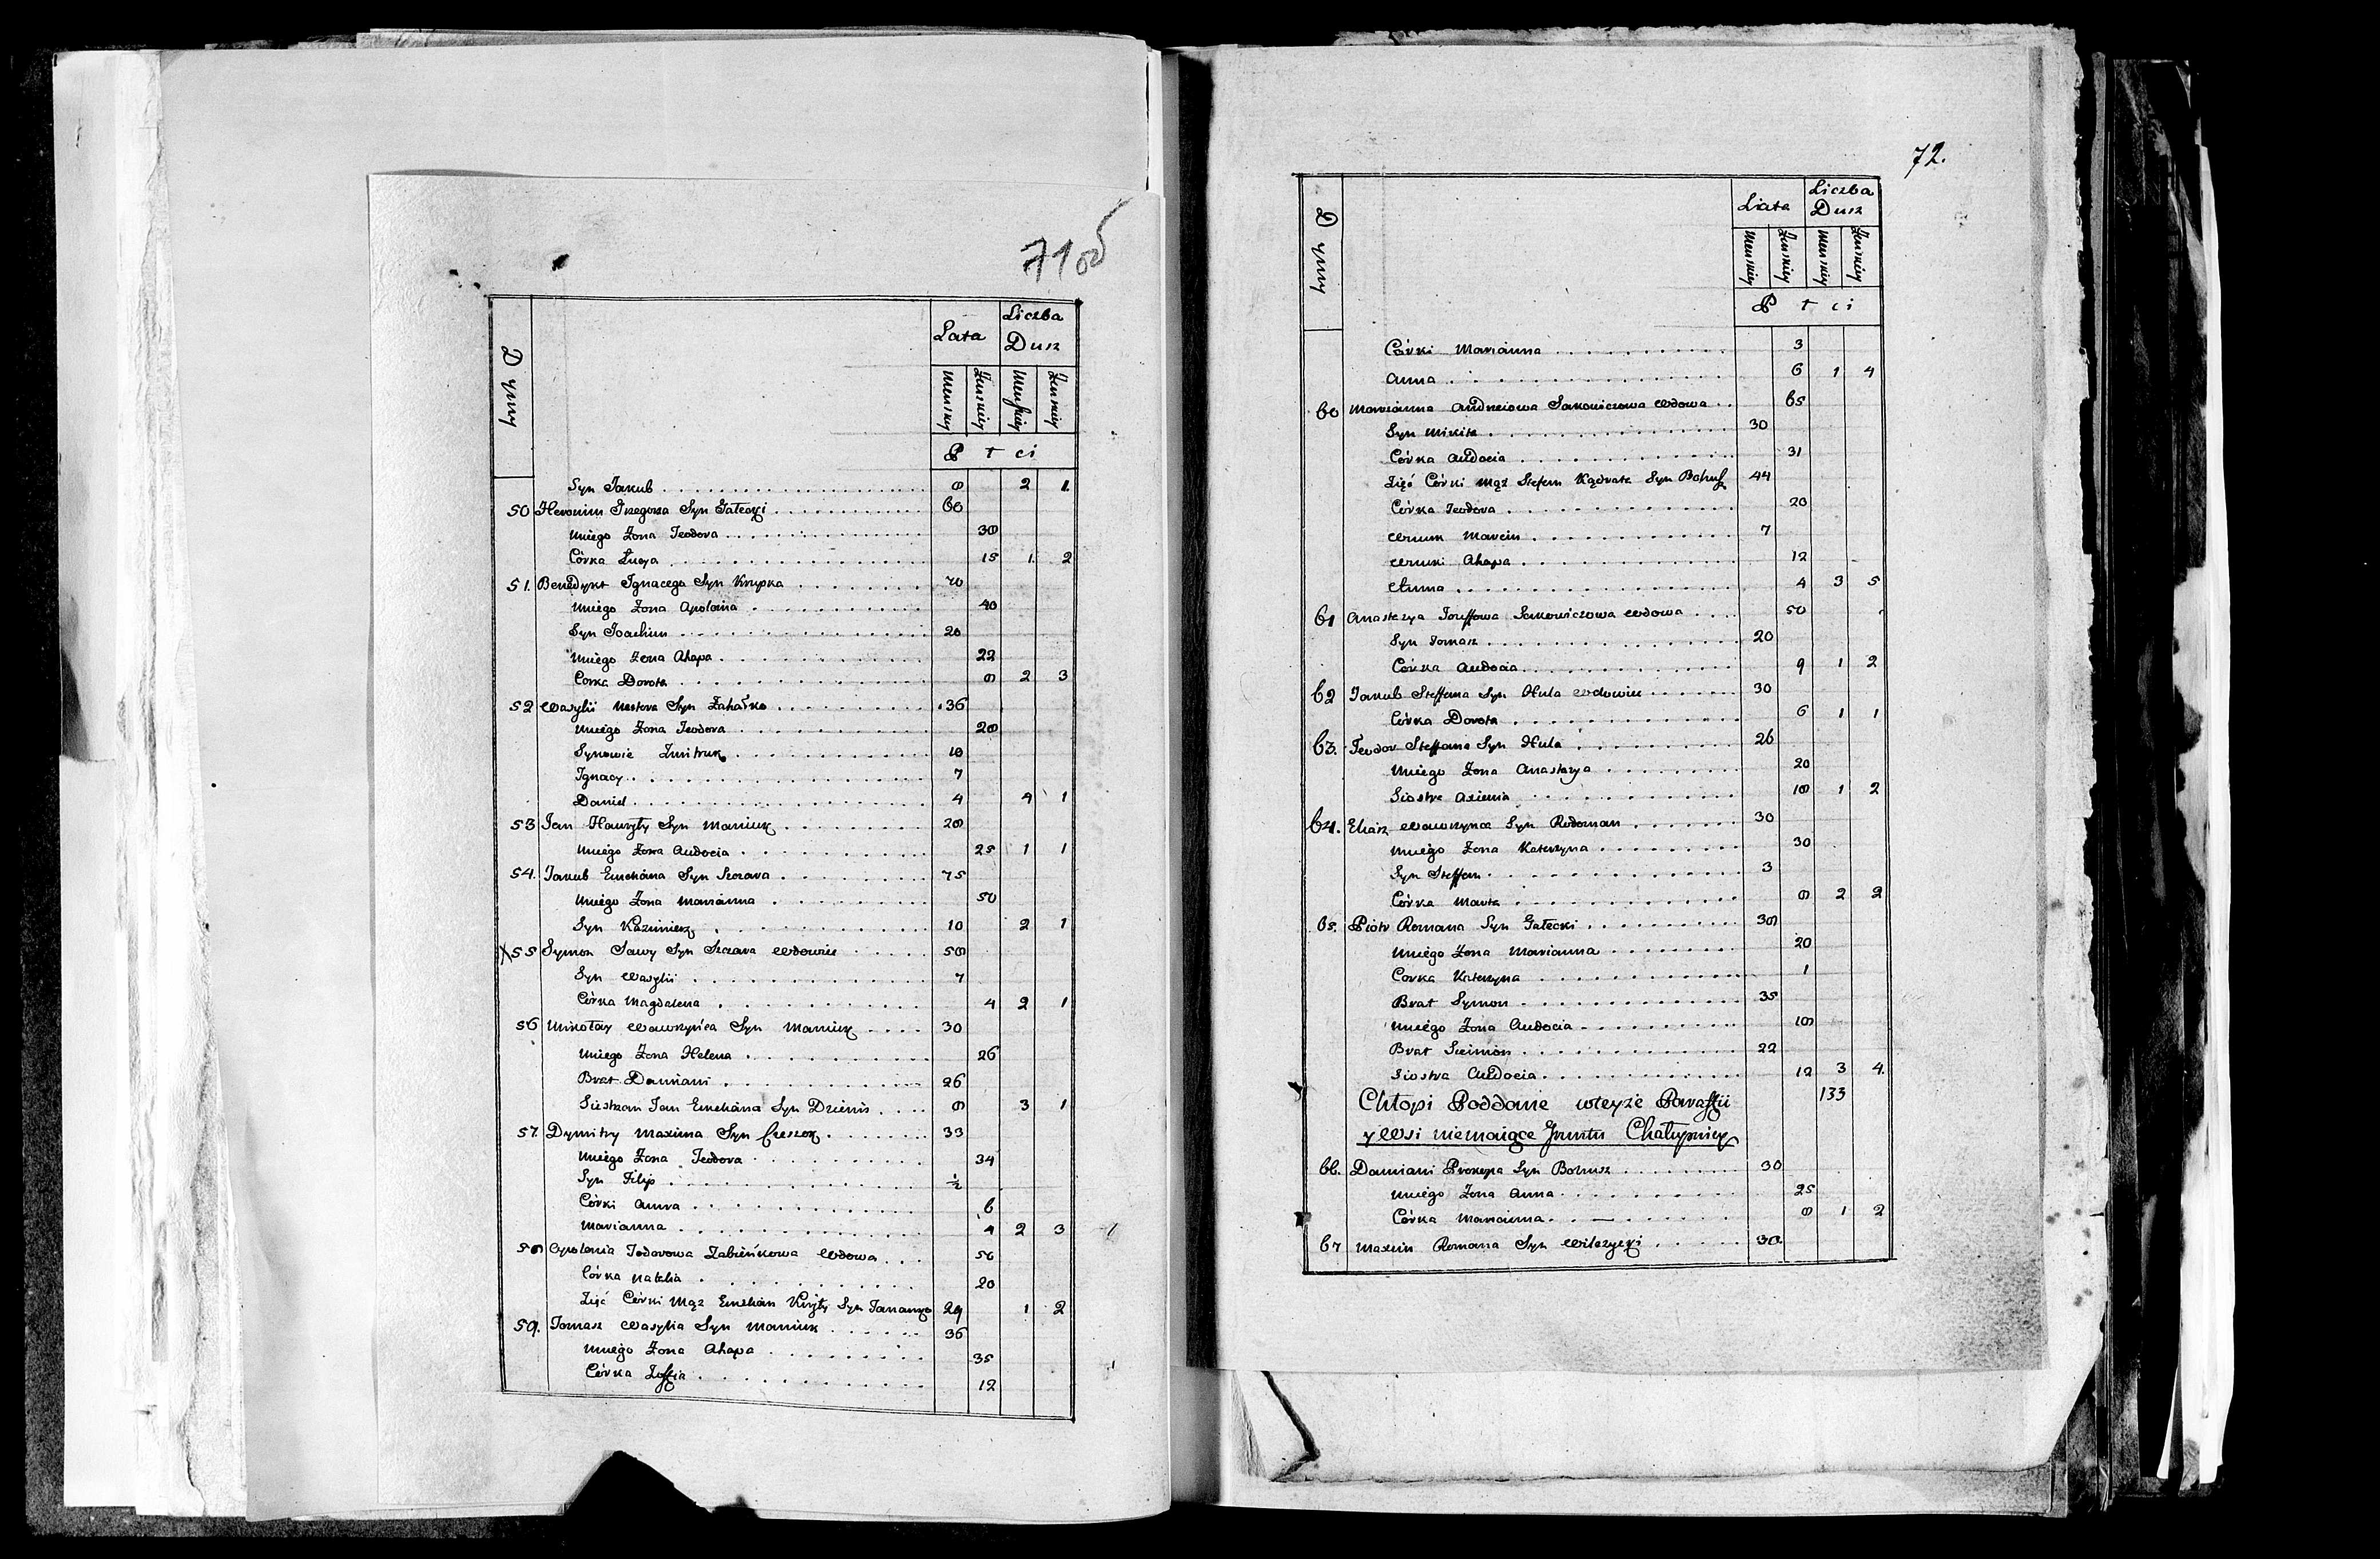 71об
Dymy
Lata
Liczba Dusz
Męskiey Żeńskiey Męskiey Żeńskiey
Płci
Syn Jakub 8 2 1
50 Heronim Grzegorza Syn Gałecki 60
Uniego Żona Teodora 38
Córka Łucya 15 1 2
51. Benedykt Ignacego Syn Krupka 70
Uniego Żona Apolonia 40
Syn Joachim 20
Uniego Żona Ahapa 22
Corka Dorota 8 2 3
52 Wasylii Nestora Syn Zahałko 36
Uniego Żona Teodora 28
Synowie Zmitruk 10
Ignacy 7
Daniel 4 4 1
53 Jan Hawryły Syn Maniuk 28
Uniego Żona Audocia 25 1 1
54. Jakub Emeliana Syn Szczava 75
Uniego Żona Marianna 50
Syn Kazimierz 10 2 1
X55 Symon Sawy Syn Szczava Wdowiec 58
Syn Wasylii 7
Córka Magdalena 4 2 1
56 Mikołay Wawrzyńca Syn Maniuk 30
Uniego Żona Helena 26
Brat Damiani 26
Siestrzan Jan Emeliana Syn Dzienis 8 3 1
57. Dymitry Maxima Syn 33
Uniego Żona Teodora 34
Syn Filip ½
Córki Anna 6
Marianna 4 2 3
58 Apolonia Todorowa Zabieńkowa Wdowa 56
Córka Natalia 20
Zięć Córki Mąż Emelian Kiryły Syn 29 1 2
59. Tomasz Wasylia Syn Maniuk 36
Uniego Żona Ahapa 35
Córka Zoffia 12
72.
Dymy
Liata
Liczba Dusz
Męskiey Żeńskiey Męskiey Żeńskiey
Płci
Córki Marianna 3
Anna 6 1 4
60 Marianna Andrzeiowa Sakowiczowa Wdowa 65
Syn Mikita 30
Córka Audocia 31
Zięć Córki Mąż Stefan Kądrata Syn Bohusz 44
Córka Teodora 20
Wnuk Marcin 7
Wnuki Ahapa 12
Anna 4 3 5
61 Anastazya Jozeffowa Sakowiczowa Wdowa 50
Syn Tomasz 20
Córka Audocia 9 1 2
62 Jakub Steffana Syn Hula Wdowiec 30
Córka Dorota 6 1 1
63. Teodor Steffana Syn Hula 26
Uniego Żona Anastazya 20
Siostra Axienia 18 1 2
64. Eliasz Wawrzynca Syn Rodoman 30
Uniego Żona Katerzyna 30
Syn Steffan 3
Córka Marta 8 2 2
65. Piotr Romana Syn Gałecki 38
Uniego Żona Marianna 20
Corka Katerzyna 1
Brat Symon 35
Uniego Żona Audocia 18
Brat Siemion 22
Siostra Audocia 12 3 4.
Chłopi Poddane wteyże Paraffii 133
y Wsi niemaiące Gruntu Chałupnicy
66. Damiani Prokopa Syn Bohusz 30
Uniego Żona Anna 25
Córka Marianna 8 1 2
67 Maxim Romana Syn Wilczycki 30